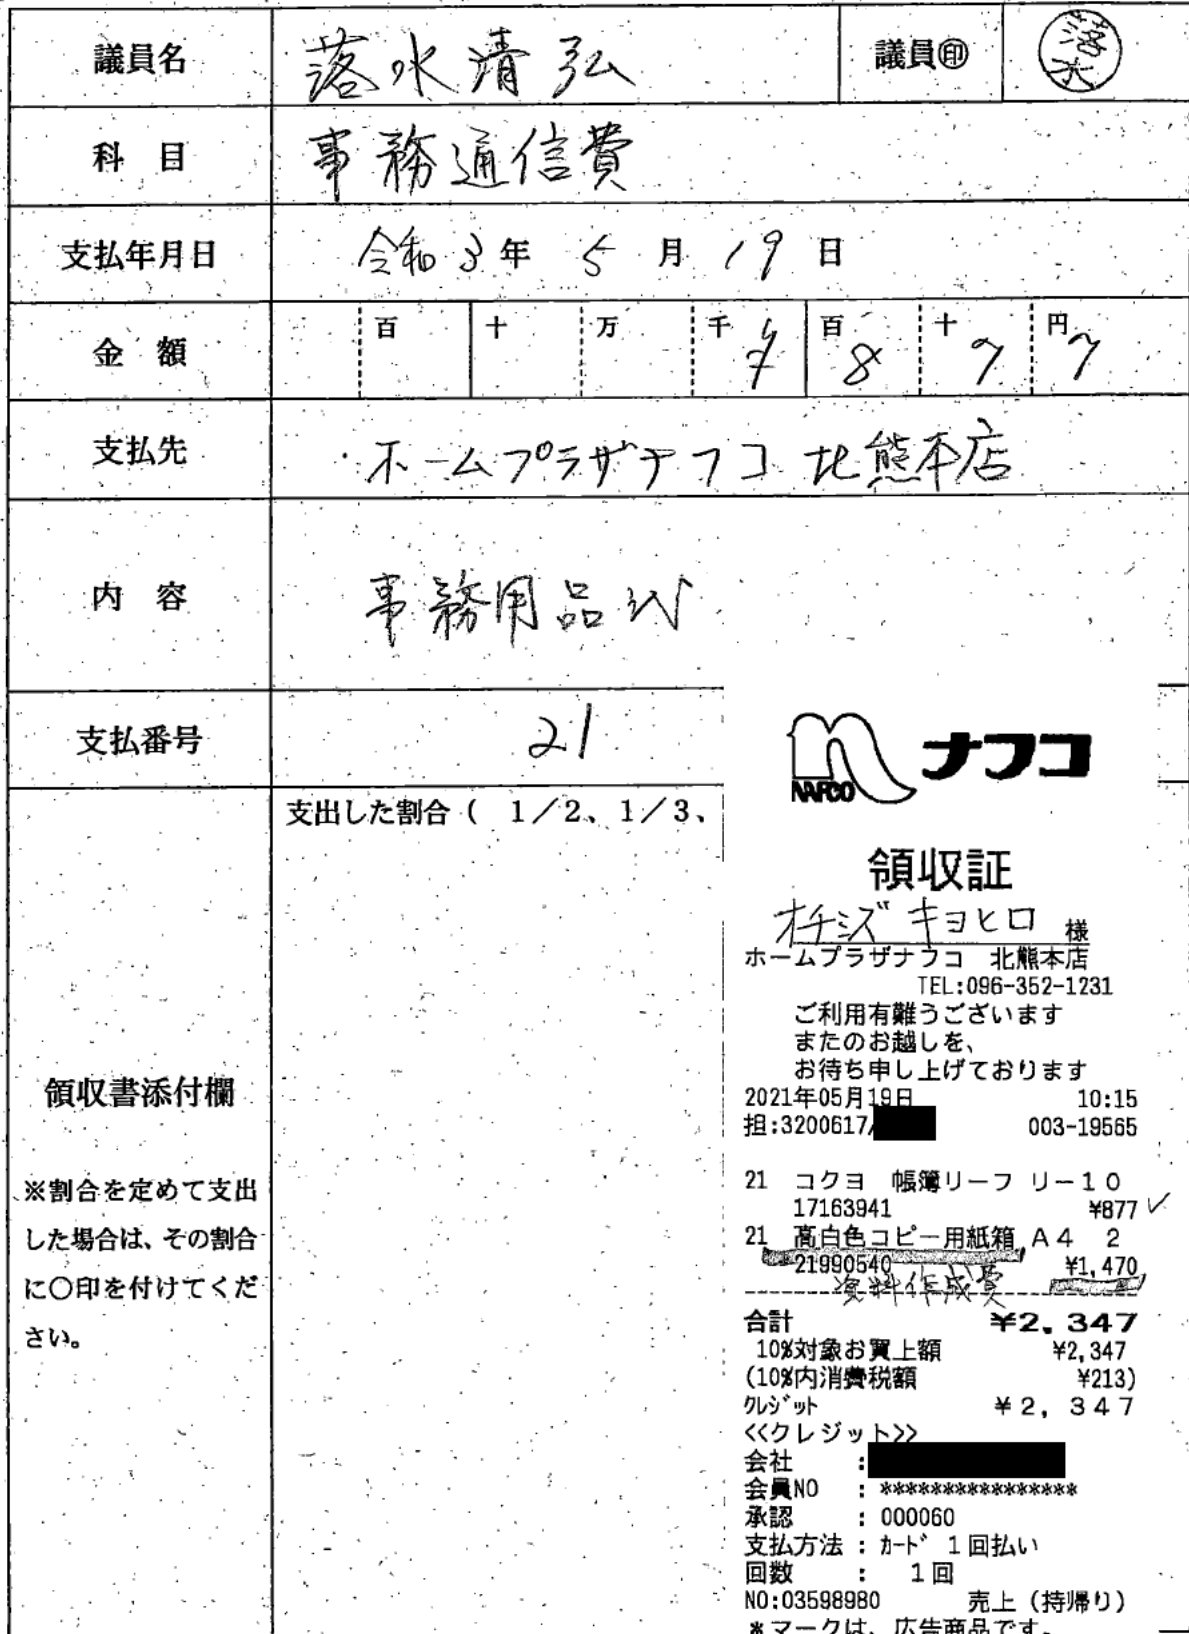 議員名 落水清弘 議員㊞ 落水
科 目 事務通信費
支払年月日 令和3年 5月 19日
金 額 百 十 万 千 ¥ 百 8 十 7 円 7
支払先 ホームプラザナフコ 北熊本店
内 容 事務用品代
支払番号 21
支出した割合( 1/2、1/3、
領収書添付欄
※割合を定めて支出
した場合は、その割合
に〇印を付けてくだ
さい。
NAFCO ナフコ
領収証
オチミズ キヨヒロ 様
ホームプラザナフコ 北熊本店
TEL:096-352-1231
ご利用有難うございます
またのお越しを、
お待ち申し上げております
2021年05月19日 10:15
担:3200617/ 003-19565
21 コクヨ 帳簿リーフ リー10
17163941 ¥877 ✓
21 高白色コピー用紙箱 A4 2
21990540 ¥1,470
資料作成費
合計 ¥2,347
10%対象お買上額 ¥2,347
(10%内消費税額 ¥213)
クレジット ¥2,347
<<クレジット>>
会社 :
会員NO : ****************
承認 : 000060
支払方法 : カード 1回払い
回数 : 1回
NO:03598980 売上(持帰り)
*マークは、広告商品です。